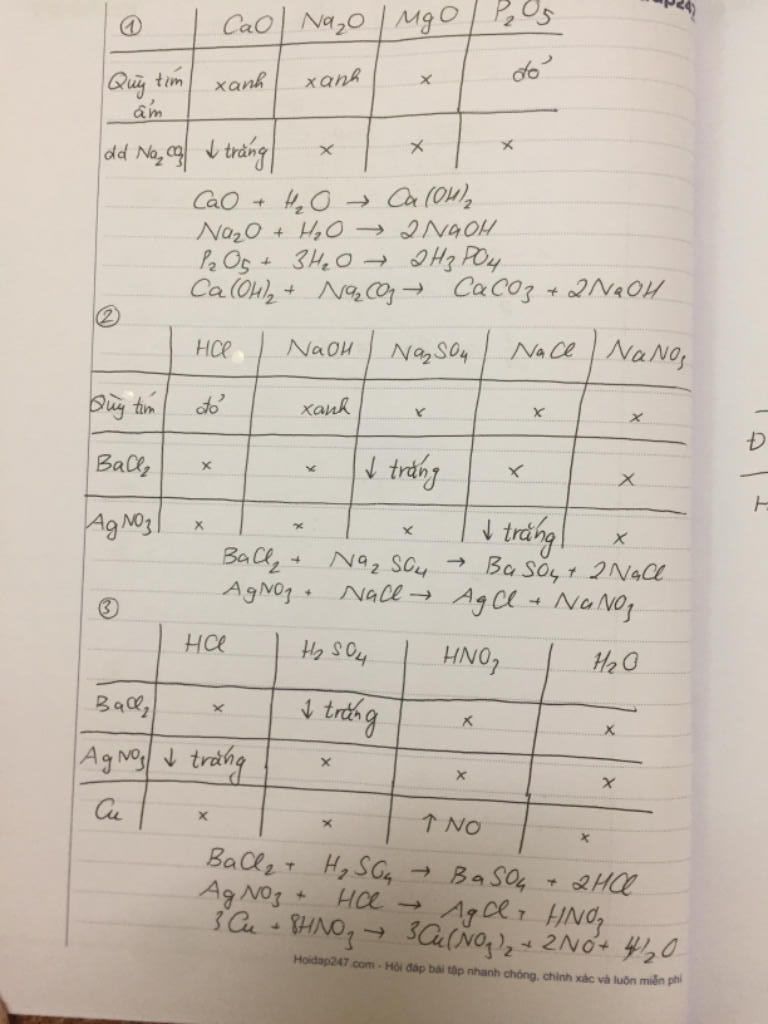 ① CaO Na₂O MgO P₂O₅
Quỳ tím ẩm xanh xanh x đỏ
dd Na₂CO₃ ↓ trắng x x x
CaO + H₂O → Ca(OH)₂
Na₂O + H₂O → 2NaOH
P₂O₅ + 3H₂O → 2H₃PO₄
Ca(OH)₂ + Na₂CO₃ → CaCO₃ + 2NaOH
②
HCl NaOH Na₂SO₄ NaCl NaNO₃
Quỳ tím đỏ xanh x x x
BaCl₂ x x ↓ trắng x x
AgNO₃ x x x ↓ trắng x
BaCl₂ + Na₂SO₄ → BaSO₄ + 2NaCl
AgNO₃ + NaCl → AgCl + NaNO₃
③
HCl H₂SO₄ HNO₃ H₂O
BaCl₂ x ↓ trắng x x
AgNO₃ ↓ trắng x x x
Cu x x ↑ NO x
BaCl₂ + H₂SO₄ → BaSO₄ + 2HCl
AgNO₃ + HCl → AgCl + HNO₃
3Cu + 8HNO₃ → 3Cu(NO₃)₂ + 2NO + 4H₂O
Hoidap247.com - Hỏi đáp bài tập nhanh chóng, chính xác và luôn miễn phí